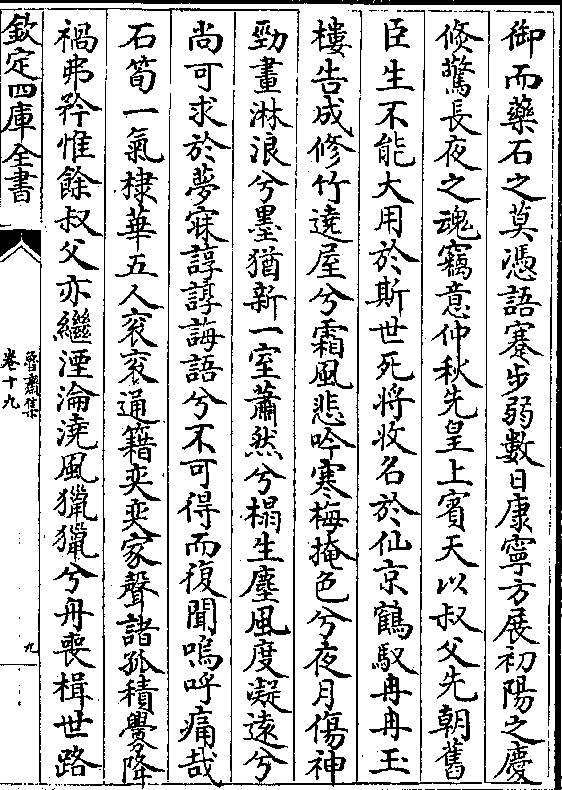 御而藥石之莫憑語蹇步弱數日康寧方展初陽之慶
倏驚長夜之魂竊意仲秋先皇上賓天以叔父先朝舊
臣生不能大用於斯世死將收名於仙京鶴馭冉冉玉
樓告成修竹遶屋兮霜風悲吟寒梅掩色兮夜月傷神
勁畫淋浪兮墨猶新一室蕭然兮榻生塵風度凝遠兮
尚可求於夢寐諄諄誨語兮不可得而復聞嗚呼痛哉
石筍一氣棣華五人衮衮通籍奕奕家聲諸孤積舋降
禍弗矜惟餘叔父亦繼湮淪澆風獵獵兮舟喪楫世路
欽定四庫全書
魯齋集
卷十九
九